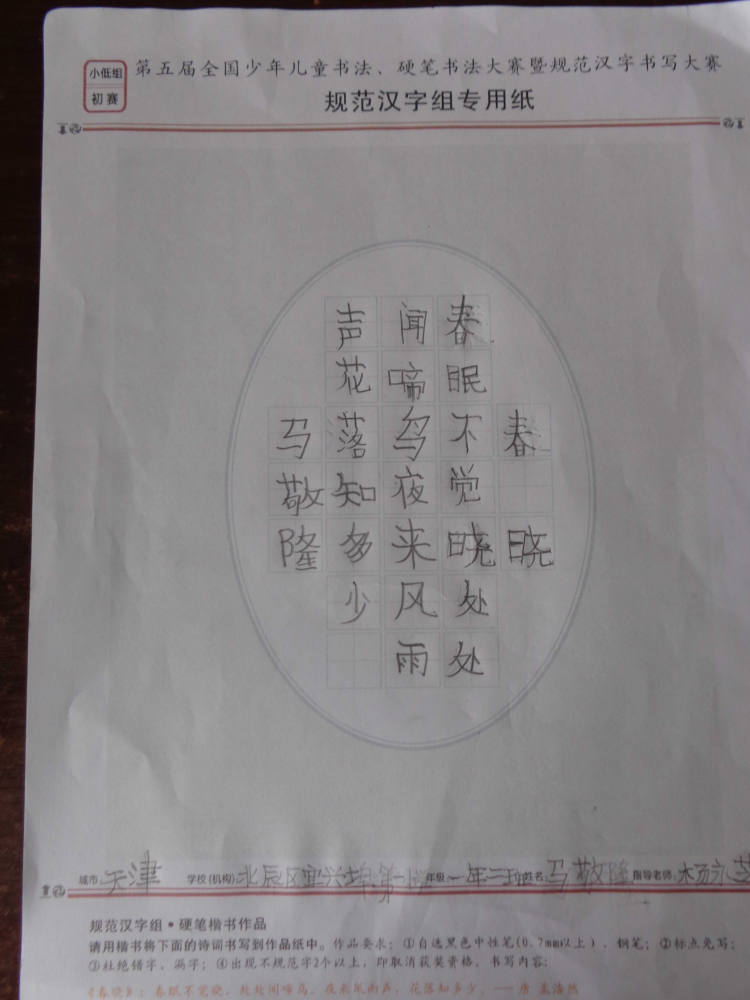 小低组
初赛
第五届全国少年儿童书法、硬笔书法大赛暨规范汉字书写大赛
规范汉字组专用纸
春晓
春眠不觉晓处处
闻啼鸟夜来风雨
声花落知多少
马敬隆
城市:天津 学校(机构):北辰区宜兴埠第一小学 年级:一年二班 姓名:马敬隆 指导老师:杨永
规范汉字组·硬笔楷书作品
请用楷书将下面的诗词书写到作品纸中。作品要求:①自选黑色中性笔(0.7mm以上)、钢笔;②标点免写;
③杜绝错字、漏字;④出现不规范字2个以上,即取消获奖资格。书写内容:
《春晓》:春眠不觉晓,处处闻啼鸟。夜来风雨声,花落知多少。——唐 孟浩然